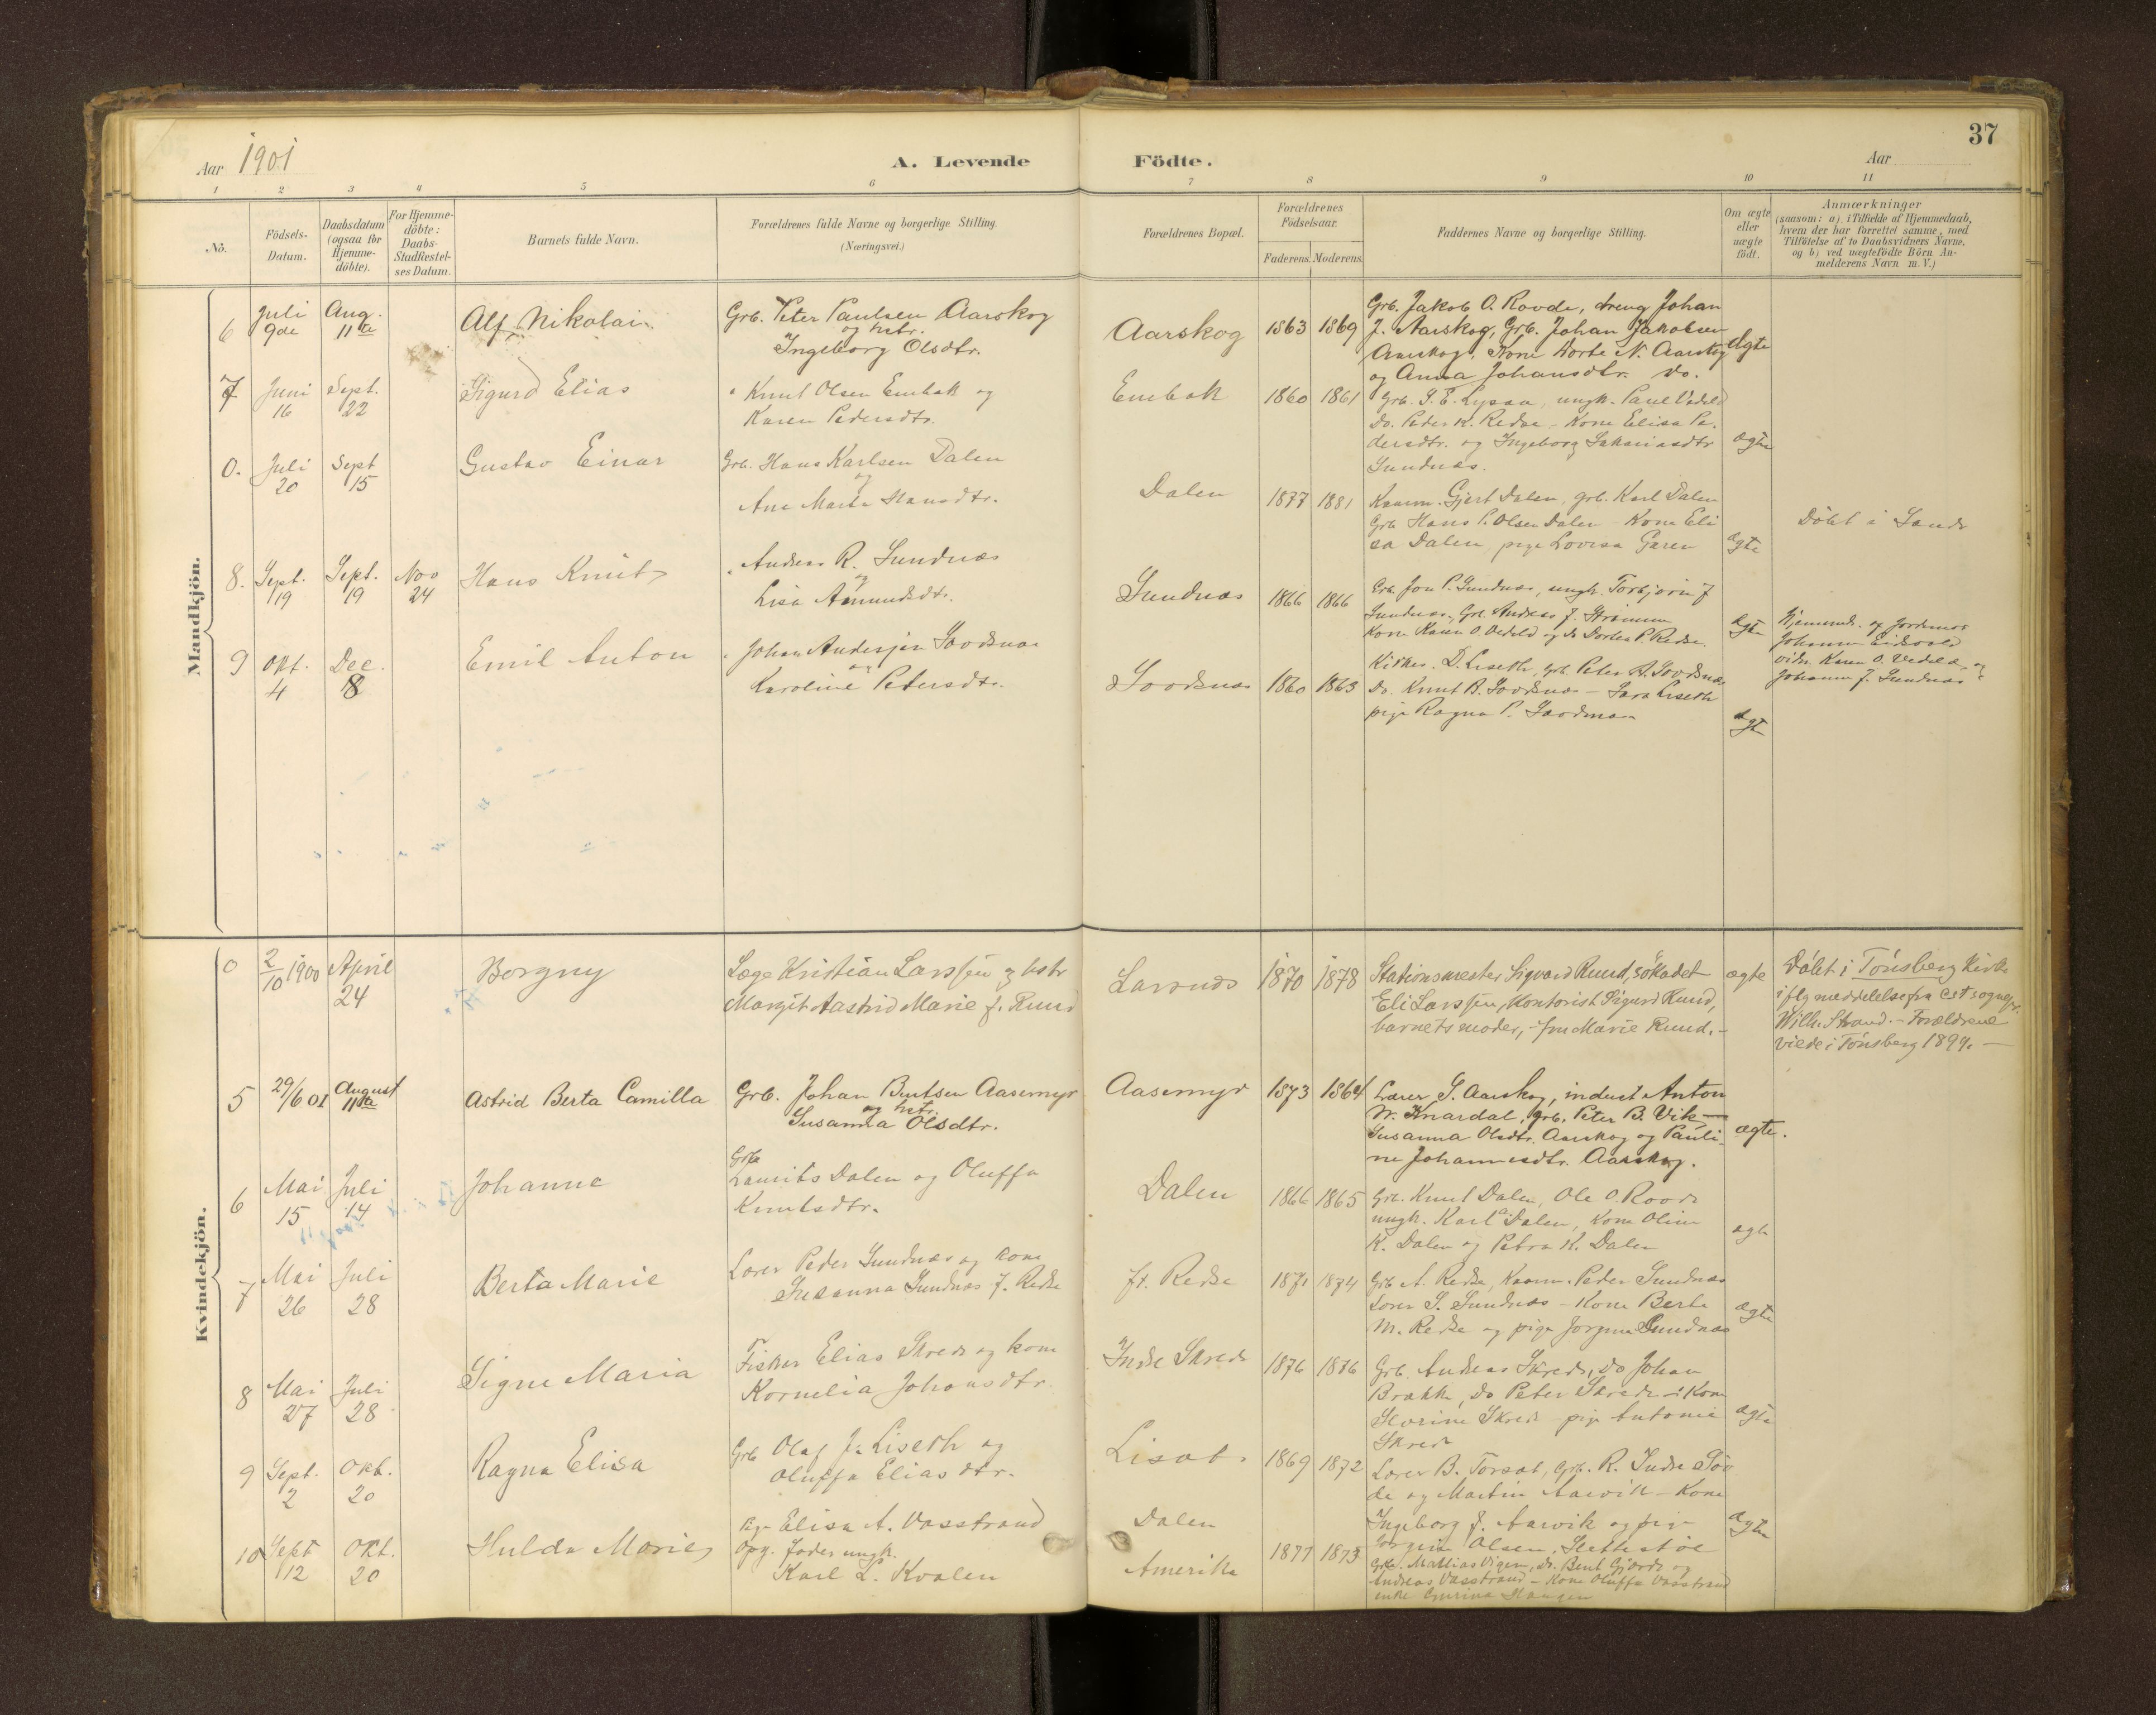 37
Aar 1901
A. Levende
Födte.
Aar
1 2 3 4 5 6 7 8 9 10 11
No.
Födsels-
Datum.
Daabsdatum
(ogsaa for
Hjemme-
döbte).
For Hjemme-
döbte:
Daabs-
Stadfæstel-
ses Datum.
Barnets fulde Navn.
Forældrenes fulde Navne og borgerlige Stilling.
(Næringsvei.)
Forældrenes Bopæl.
Forældrenes
Födselsaar.
Faderens. Moderens.
Faddernes Navne og borgerlige Stilling.
Om ægte
eller
uægte
födt.
Anmærkninger
(saasom: a) i Tilfælde af Hjemmedaab,
hvem der har forrettet samme, med
Tilföielse af to Daabsvidners Navne,
og b) ved uægtefödte Börn An-
melderens Navn m. V.)
Mandkjön.
6
Juli
9de
Aug.
11te
Alf Nikolai
Grb. Peter Paulsen Aarskog
og hstr.
Ingeborg Olsdtr.
Aarskog
1863 1869
Grb. Jakob O. Rovde, dreng Johan
J. Aarskog, Grb. Johan Jakobsen
Aarskog, Kone Dorte N. Aarskog
og Anna Johansdtr. do.
ægte
7
Juni
16
Sept.
22
Sigurd Elias
" Knut Olsen Embak og
Karen Pedersdtr.
Embak
1860 1861
Grb. S. E. ungk. Paul
Do. Peder K. Redse - Kone Elisa Pe-
dersdtr. og Ingeborg Sakariasdtr
Sundnæs.
ægte
0.
Juli
20
Sept
15
Gustav Einar
Grb. Hans Karlsen Dalen
og
Ane Marta Hansdtr.
Dalen
1877 1881
Kaarm. Gjert Dalen, grb. Karl Dalen
Grb Hans P. Olsen Dalen - Kone Eli
sa Dalen, pige Lovisa
ægte
Döbt i Sande
8.
Sept.
19
Sept.
19
Nov
24
Hans Knut
" Andreas R. Sundnæs
og
Lisa Amundsdtr.
Sundnæs
1866 1866
Grb. Jon P. Sundnæs, ungk. Torbjörn J
Sundnæs, Grb Andreas J. Strömmen
Kone Karen O. Vedeld og do Dortea P. Redse
ægte
Hjemmed. af Jordmor
Johanne Eidsvold
vidn. Karen O. Vedeld og
Johanne J. Sundnæs
9
Okt.
4
Dec.
8
Emil Anton
" Johan Andersen Sordsnæs
og
Karoline Petersdtr.
Sordsnæs
1860 1863
Kirkes. D. Liseth, grb. Peter A. Sordsnæs
Do. Knut B. Sordsnæs - Sara Liseth
pige Ragna P. Sordsnæs
ægte
Kvindekjön.
0
2/10 1900
April
24
Borgny
Læge Kristian Larssen og hstr
Margit Aastrid Marie f. Ruud
Larsnæs
1870 1878
Stationsmester Sigvard Ruud, sökadet
Eli Larssen, Kontorist Sigurd Ruud,
barnets moder, - fru Marie Ruud. -
ægte
Döbt i Tönsberg Kirke
iflg meddelelse fra sognepr.
Wilh. Strand. - Forældrene
viede i Tönsberg 1899. -
5
29/6 01
August
11te
Astrid Berta Camilla
Grb. Johan Bentsen Aasemyr
og hstr.
Susanna Olsdtr.
Aasemyr
1873 1864
Lærer S. Aarskog, inderst Anton
W. Knardal, grb. Peter B. Vik —
Susanna Olsdtr. Aarskog og Pauli-
ne Johannesdtr. Aarskog.
ægte.
6
Mai
15
Juli
14
Johanne
Grb
Laurits Dalen og Oluffa
Knutsdtr.
Dalen
1866 1865
Grb. Knut Dalen, Ole O. Rovde
ungk. Karl Dalen, Kone Oline
K. Dalen og Petra K. Dalen
ægte
7
Mai
26
Juli
28
Berta Marie
Lærer Peder Sundnæs og kone
Susanna Sundnæs f. Redse
ft. Redse
1871 1874
Grb A. Redse, Kaarm. Peder Sundnæs
Lærer S. Sundnæs - Kone Berta
M. Redse og pige Jörgine Sundnæs
ægte
8
Mai
27
Juli
28
Signe Maria
Fisker Elias Skrede og kone
Kornelia Johansdtr.
Indre Skrede
1876 1876
Grb. Andreas Skrede, do Johan
Brække, do Peter Skrede - Kone
Severine Skrede - pige Antonie
Skrede
ægte
9
Sept.
2
Okt.
20
Ragna Elisa
Grb Olaf J. Liseth og
Oluffa Eliasdtr.
Lisæt.
1869 1872
Lærer B. Torsæt, Grb. R. Indre Sör
de og Martin Aarvik - Kone
Ingeborg J. Aarvik og pige
Jörgine Olsen, Slettestöl
ægte
10
Sept
12
Okt.
20
Hulda Marie
Pige Elisa A. Vasstrand
Opg. fader ungk.
Karl L. Kvalen
Dalen
Amerika
1877 1873
Grb. Mathias Vigen, do. Bent Gjærde og
Andreas Vasstrand - Kone Oluffa Vasstrand
enke Haugen